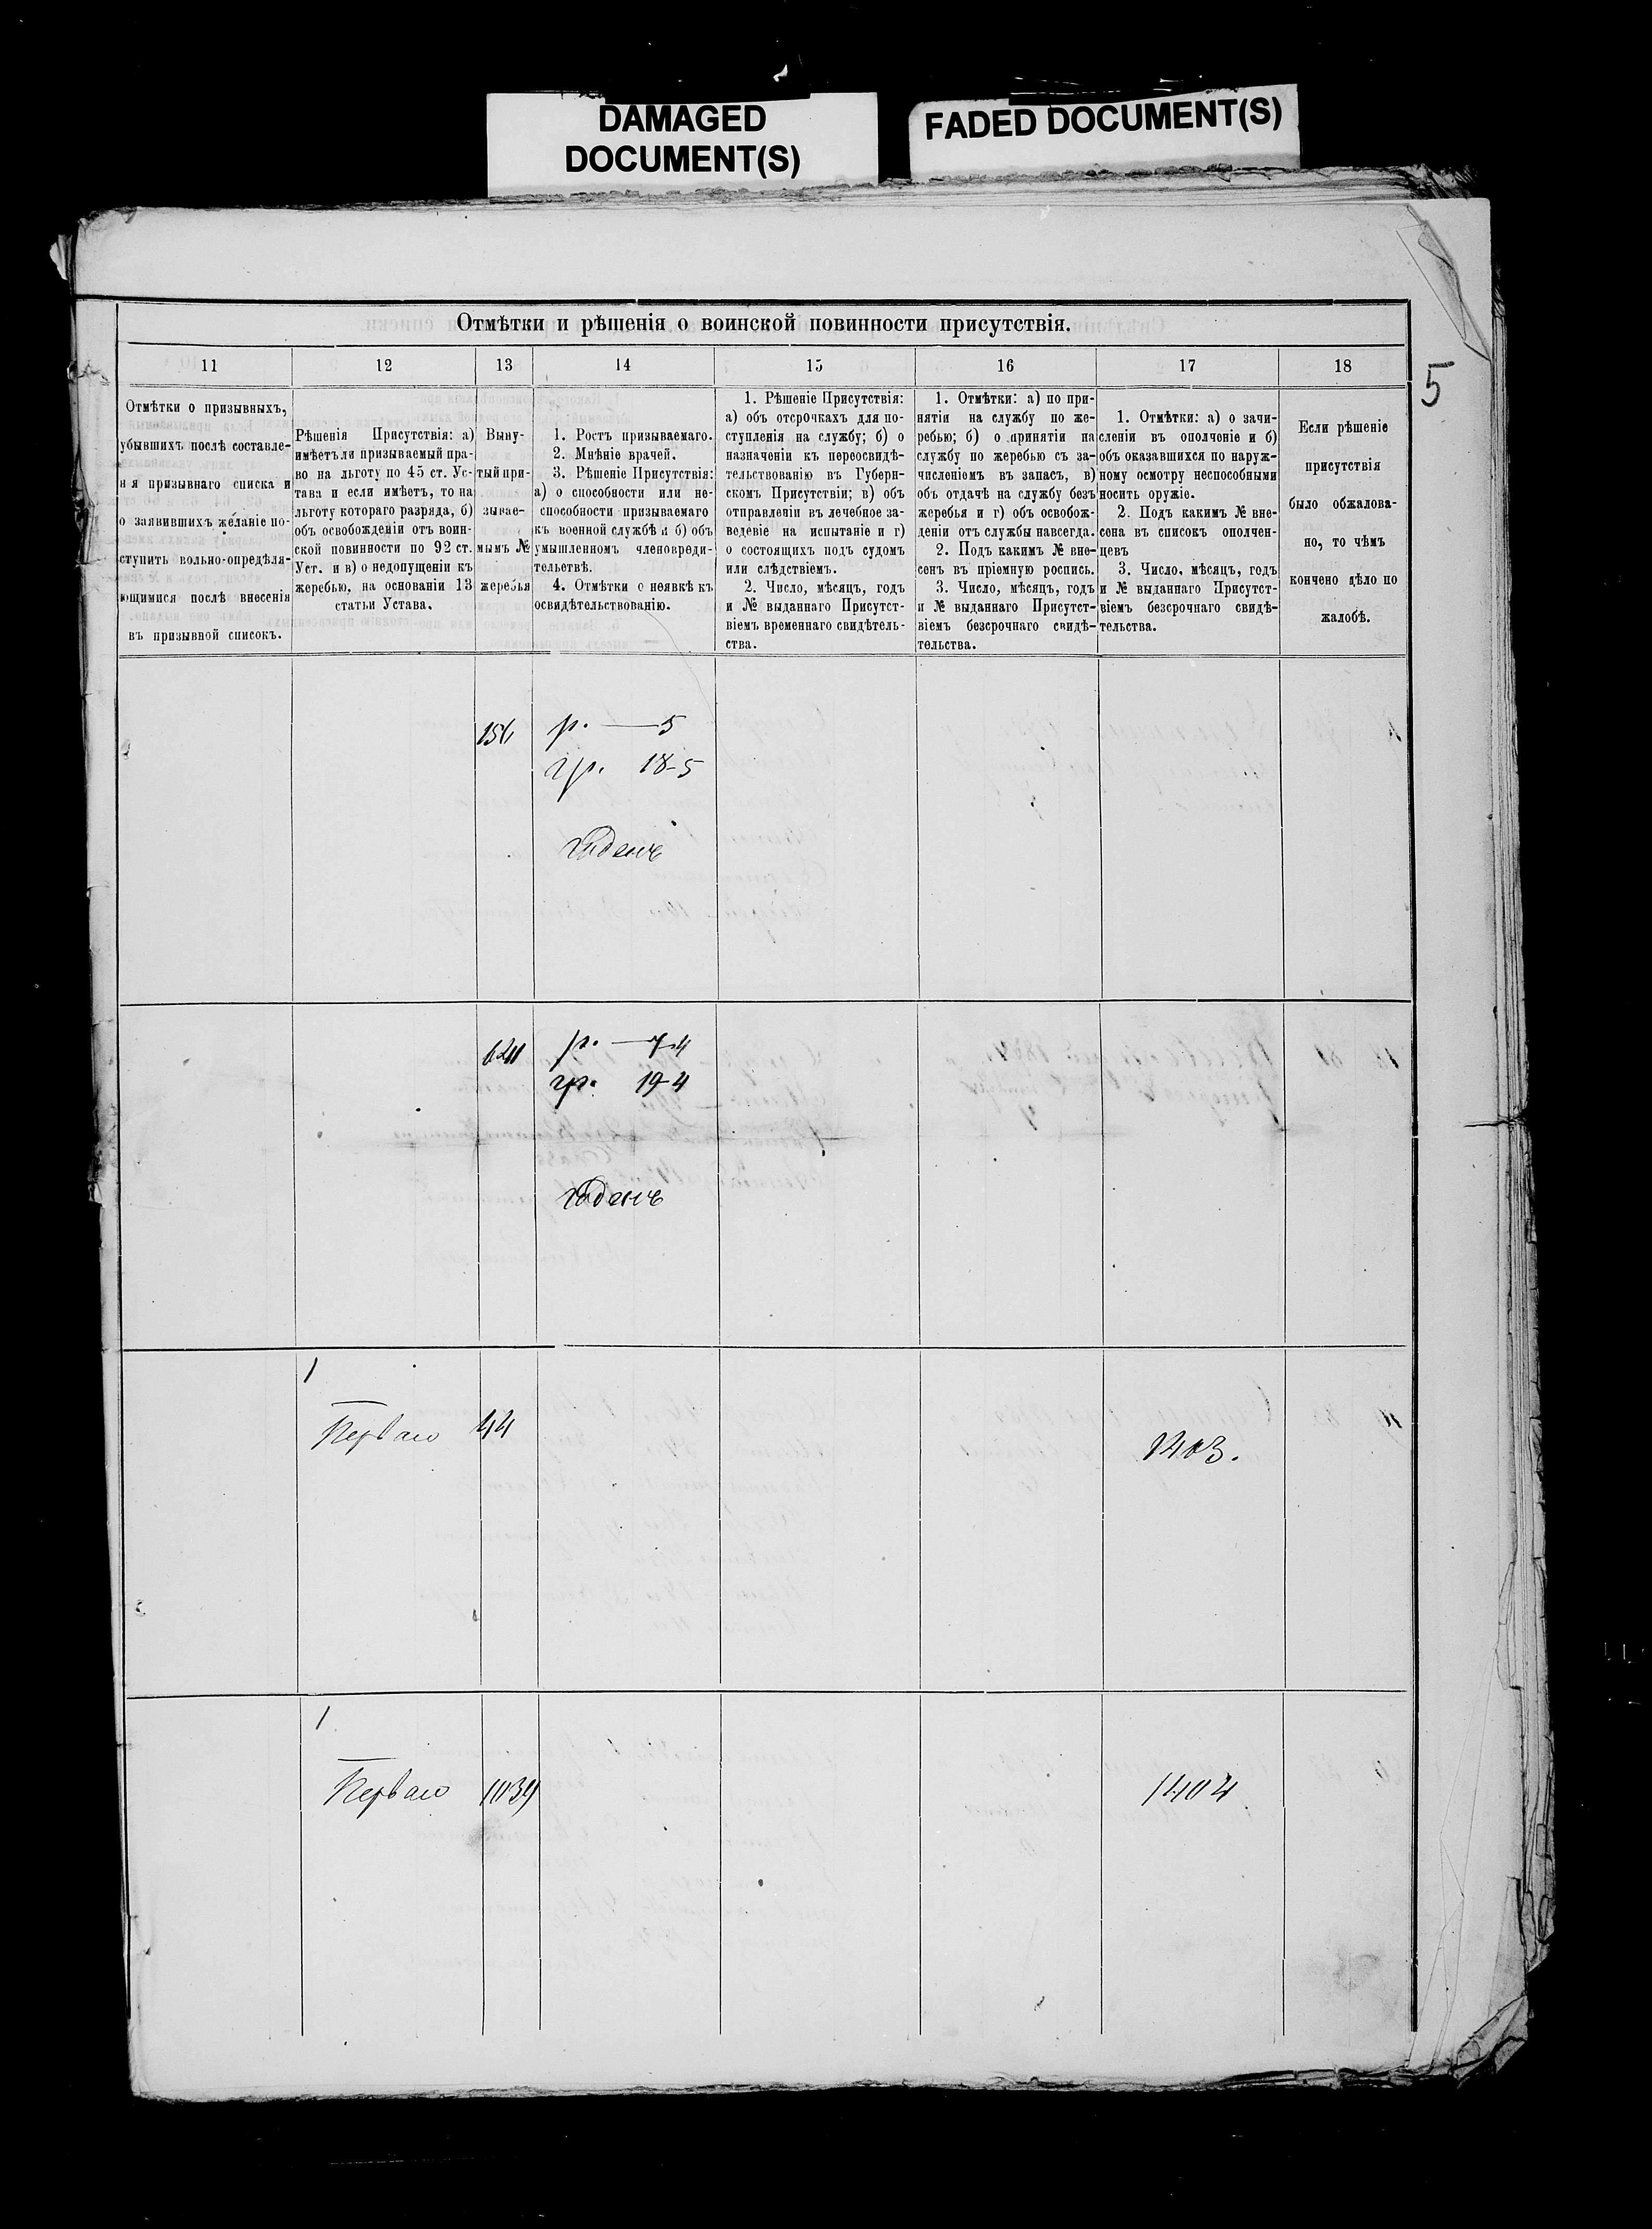 DAMAGED
DOCUMENT(S)
FADED DOCUMENT(S)
Отмѣтки и рѣшенія о воинской повинности присутствія.
5
11
Отмѣтки о призывныхъ,
убывшихъ послѣ составле-
н я призывнаго списка и
о заявившихъ желаніе по-
ступить вольно-опредѣля-
ющимися послѣ внесенія
въ призывной списокъ.
12
Рѣшенія Присутствія: а)
имѣетъ ли призываемый пра-
во на льготу по 45 ст. Ус-
тава и если имѣетъ, то на
льготу котораго разряда, б)
объ освобожденіи отъ воин-
ской повинности по 92 ст.
Уст. и в) о недопущеніи къ
жеребью, на основаніи 13
статьи Устава.
13
Выну-
тый при-
зывае-
мымъ №
жеребья
14
1. Ростъ призываемаго.
2. Мнѣніе врачей.
3. Рѣшеніе Присутствія:
а) о способности или не-
способности призываемаго
къ военной службѣ и б) объ
умышленномъ членовреди-
тельствѣ.
4. Отмѣтки о неявкѣ къ
освидѣтельствованію.
15
1. Рѣшеніе Присутствія:
а) объ отсрочкахъ для по-
ступленія на службу; б) о
назначеніи къ переосвидѣ-
тельствованію въ Губерн-
скомъ Присутствіи; в) объ
отправленіи въ лечебное за-
веденіе на испытаніе и г)
о состоящихъ подъ судомъ
или слѣдствіемъ.
2. Число, мѣсяцъ, годъ
и № выданнаго Присутст-
віемъ временнаго свидѣтель-
ства.
16
1. Отмѣтки: а) по при-
нятіи на службу по же-
ребью; б) о принятіи на
службу по жеребью съ за-
численіемъ въ запасъ, в)
объ отдачѣ на службу безъ
жеребья и г) объ освобож-
деніи отъ службы навсегда.
2. Подъ какимъ № вне-
сенъ въ пріемную роспись.
3. Число, мѣсяцъ, годъ
и № выданнаго Присутст-
віемъ безсрочнаго свидѣ-
тельства.
17
1. Отмѣтки: а) о зачи-
сленіи въ ополченіе и б)
объ оказавшихся по наруж-
ному осмотру неспособными
носить оружіе.
2. Подъ какимъ № вне-
сена въ списокъ ополчен-
цевъ
3. Число, мѣсяцъ, годъ
и № выданнаго Присутст-
віемъ безсрочнаго свидѣ-
тельства.
18
Если рѣшеніе
присутствія
было обжалова-
но, то чѣмъ
кончено дѣло по
жалобѣ.
р. — 5
гр. 18-5
годенъ
р. — 7 4
гр. 19-4
годенъ
1
Перваго 44 1403.
1
Перваго 1039 1404